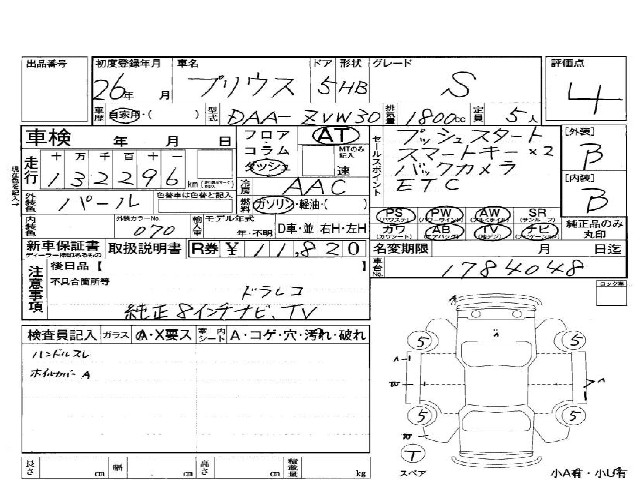 出品番号 初度登録年月 車名 ドア 形状 グレード 評価点
26年 月 プリウス 5 HB S 4
車歴 自家用・( ) 型式 DAA-ZVW30 排気量 1800cc 定員 5人
車検 年 月 日 フロア AT プッシュスタート [外装]
コラム MTのみ記入 スマートキー×2 B
走行 十 万 千 百 十 一 ダッシュ 速 セールスポイント バックカメラ
132296 km 冷房 AAC ETC [内装]
外装色 パール 色替車は色替と記入 燃料 ガソリン・軽油・( ) B
PS PW AW SR
内装色 外装カラーNo 070 輸入車 モデル年式 年・不明 D車・並 右H・左H カワ AB TV ナビ 純正品のみ丸印
新車保証書 取扱説明書 R券 ¥11,820 名変期限 月 日迄
注意事項 後日品【 】 車台No 1784048
不具合箇所等
ドラレコ
純正8インチナビ、TV
検査員記入 ガラス A・X要ス 車内シート A・コゲ・穴・汚れ・破れ
ハンドルスレ
ホイルカバーA
5 5
A
5 5
T
スペア
小A有・小U有
長さ cm 幅 cm 高さ cm 積載量 kg